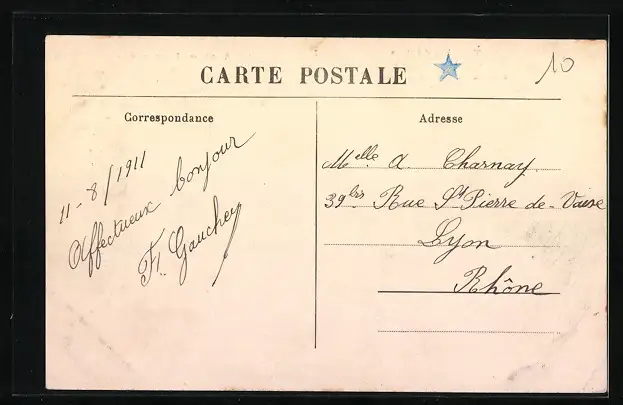 CARTE POSTALE
10
Correspondance
11-8/1911
Affectueux bonjour
Ft. Gauchey
Adresse
Melle A. Charnay.
39bis Rue St Pierre de-Vaise
Lyon
Rhône